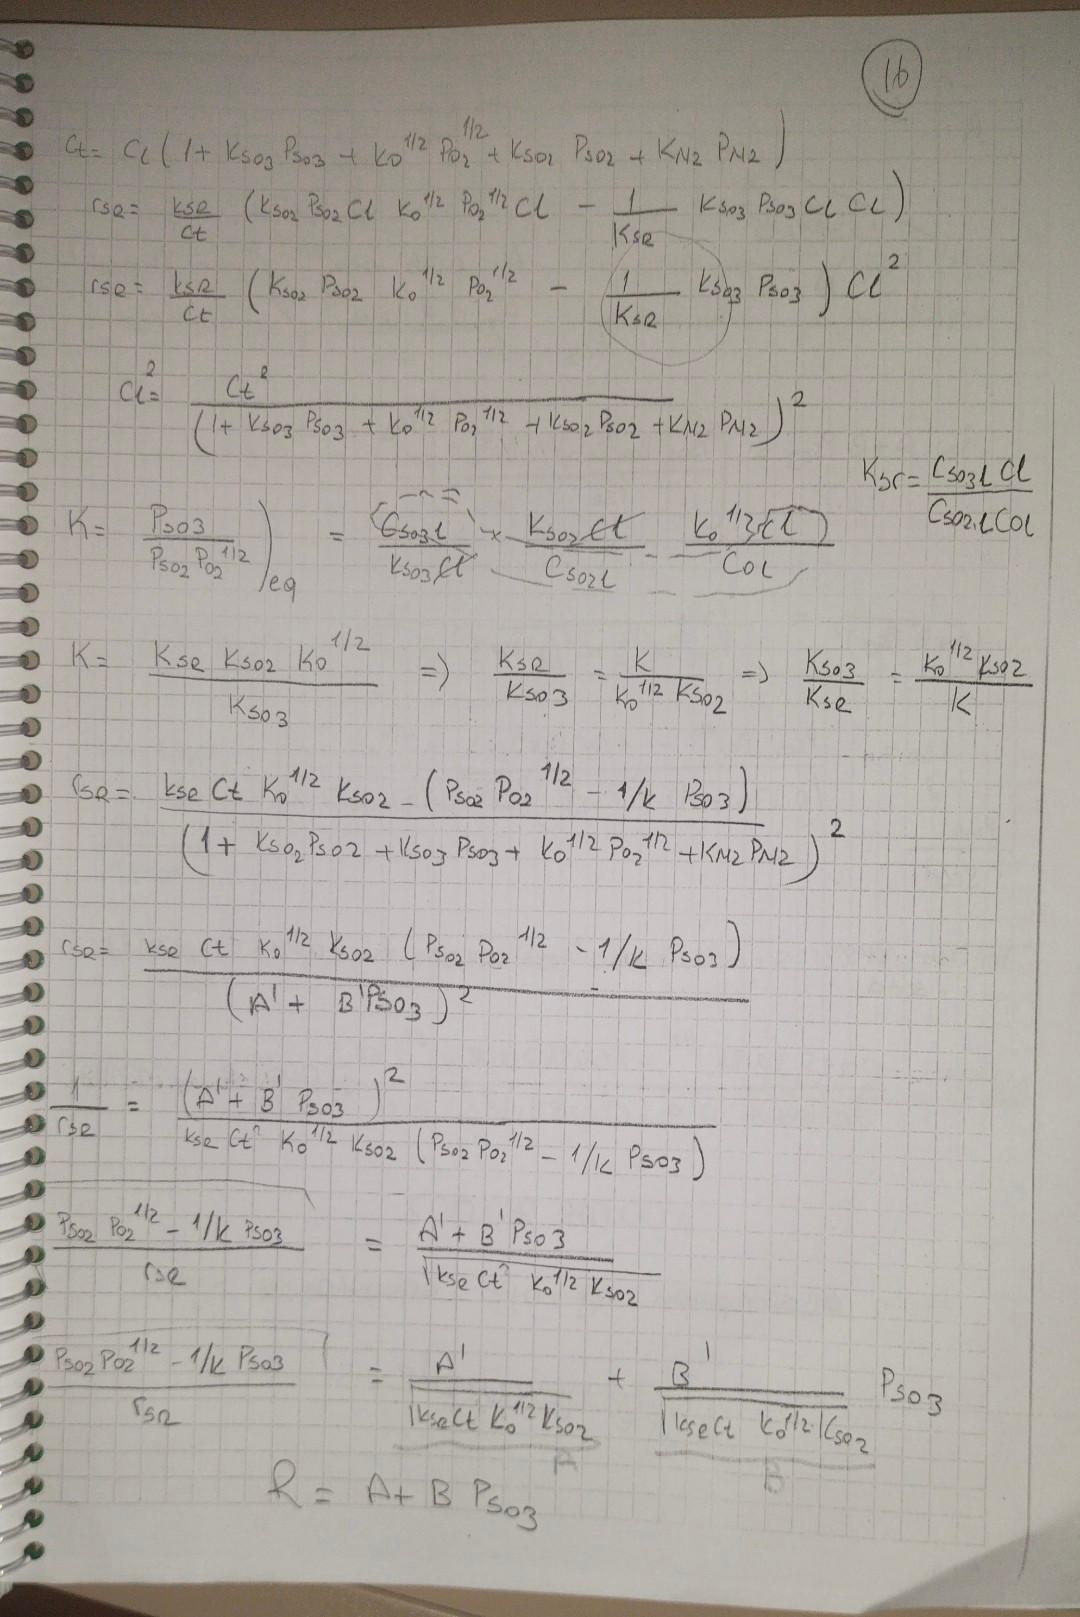 16
Ct = Cl ( 1 + KSO3 PSO3 + KO^1/2 PO2^1/2 + KSO2 PSO2 + KN2 PN2 )
rSR = kSR/Ct ( KSO2 PSO2 Cl KO^1/2 PO2^1/2 Cl - 1/KSR KSO3 PSO3 Cl Cl )
rSR = kSR/Ct ( KSO2 PSO2 KO^1/2 PO2^1/2 - 1/KSR KSO3 PSO3 ) Cl^2
Cl^2 = Ct^2 / ( 1 + KSO3 PSO3 + KO^1/2 PO2^1/2 + KSO2 PSO2 + KN2 PN2 )^2
KSr = CSO3l Cl / CSO2l COl
K = PSO3 / PSO2 PO2^1/2 )eq = CSO3l / KSO3 Cl × KSO2 Cl / CSO2l - KO^1/2 Cl / COl
K = KSR KSO2 KO^1/2 / KSO3 => KSR/KSO3 = K / KO^1/2 KSO2 => KSO3/KSR = KO^1/2 KSO2 / K
rSR = kSR Ct KO^1/2 KSO2 - ( PSO2 PO2^1/2 - 1/K PSO3 ) / ( 1 + KSO2 PSO2 + KSO3 PSO3 + KO^1/2 PO2^1/2 + KN2 PN2 )^2
rSR = kSR Ct KO^1/2 KSO2 ( PSO2 PO2^1/2 - 1/K PSO3 ) / ( A' + B' PSO3 )^2
1/rSR = ( A' + B' PSO3 )^2 / kSR Ct KO^1/2 KSO2 ( PSO2 PO2^1/2 - 1/K PSO3 )
√ PSO2 PO2^1/2 - 1/K PSO3 / rSR = A' + B' PSO3 / √ kSR Ct KO^1/2 KSO2
√ PSO2 PO2^1/2 - 1/K PSO3 / rSR = A' / √ kSR Ct KO^1/2 KSO2 + B' / √ kSR Ct KO^1/2 KSO2 PSO3
A B
R = A + B PSO3